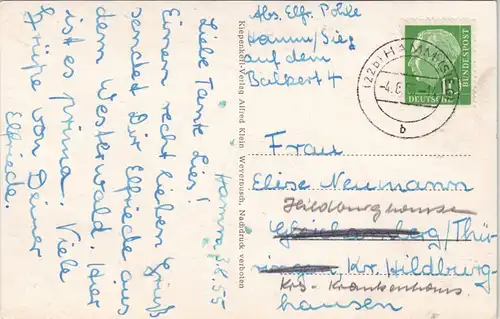 Hamm 3.8.55
Liebe Tante Lies!
Einen recht lieben Gruß
sendet Dir Elfriede aus
dem Westerwald. Hier
ist es prima. Viele
Grüße von Deiner
Elfriede.
Kiepenkerl-Verlag Alfred Klein Weyerbusch, Nachdruck verboten
Abs. Elfr. Pohle
Hamm/Sieg
auf dem
Balkert 4
(22b) HAMM (SIEG)
-4.8.
b
DEUTSCHE BUNDESPOST
Frau
Elise Neumann
Hildburghausen
/Thü-
ringen Kr. Hildburg
Krs. Krankenhaus
hausen